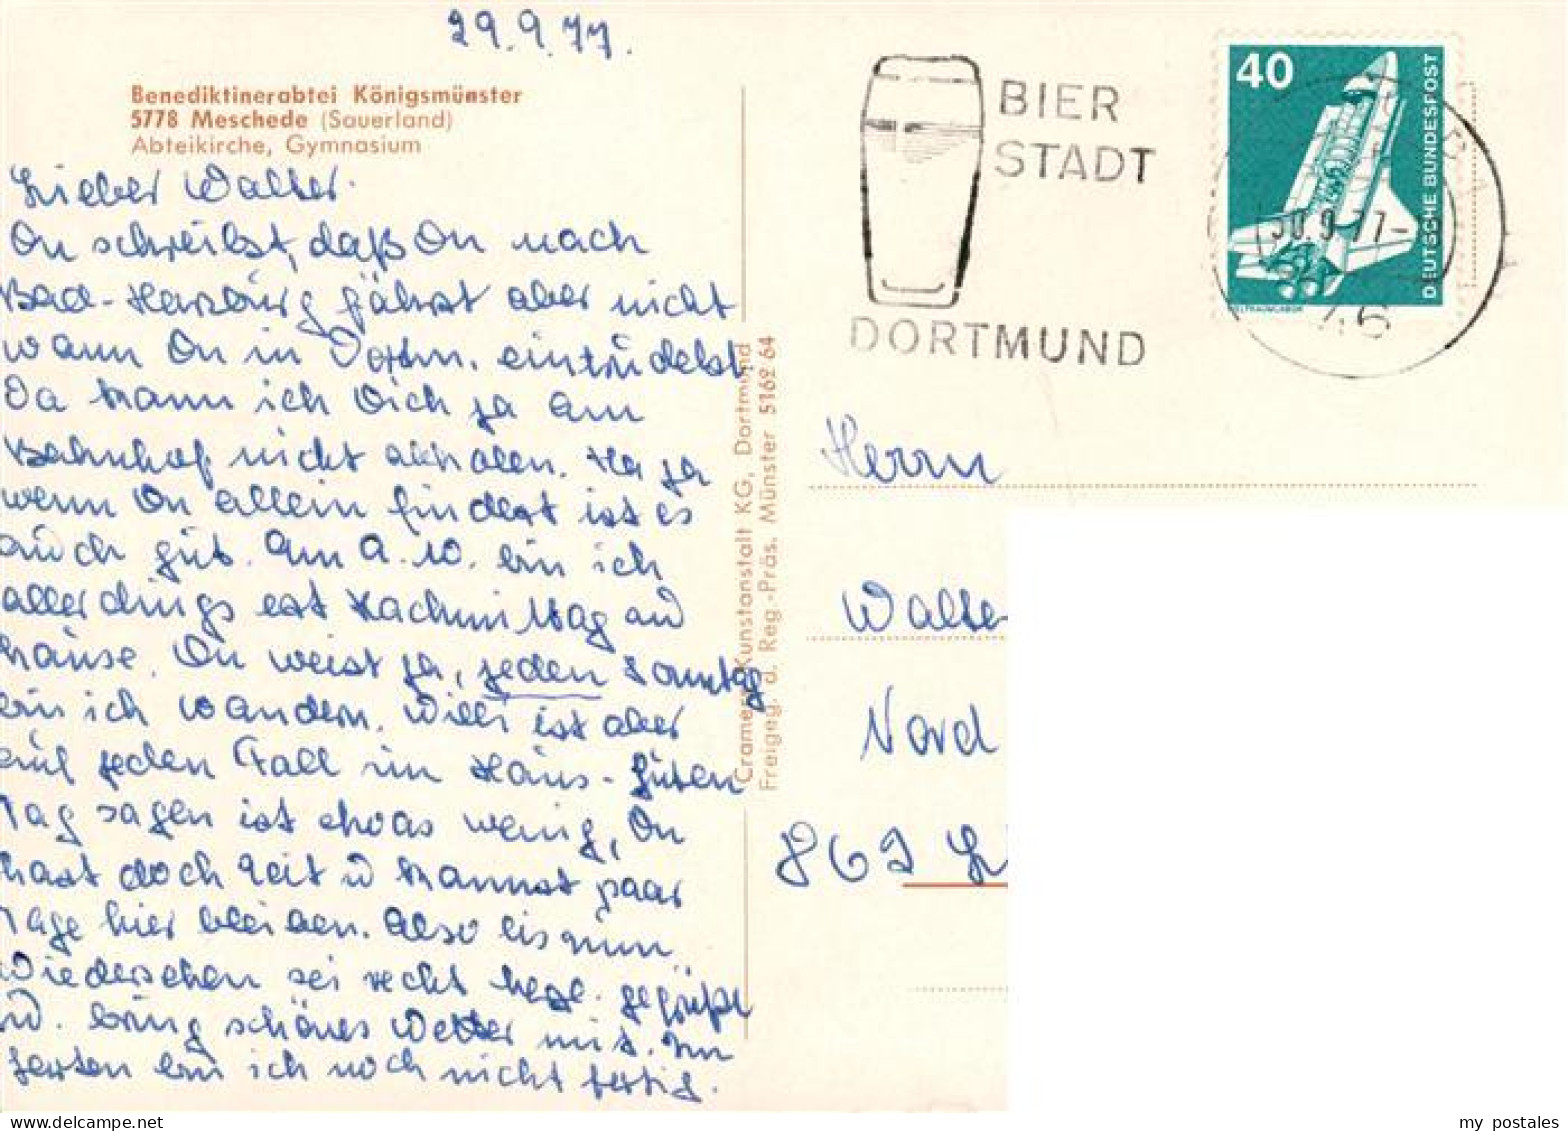 29.9.77.
Benediktinerabtei Königsmünster
5778 Meschede (Sauerland)
Abteikirche, Gymnasium
Lieber Walter.
Du schreibst, daß Du nach
Bad-Harzburg fährst aber nicht
wann Du in Dortm. eintrudelst
Da kann ich Dich ja am
Bahnhof nicht abholen. Na ja
wenn Du allein findest ist es
auch gut. Am 9.10. bin ich
allerdings erst Nachmittag zu
hause. Du weist ja, jeden Sonntag
bin ich wandern. Willi ist aber
auf jeden Fall im Haus - Guten
Tag sagen ist etwas wenig, Du
hast doch Zeit u kannst paar
Tage hier bleiben. Also bis zum
Wiedersehen sei recht herzl. gegrüßt
u. bring schönes Wetter mit. Im
Garten bin ich noch nicht fertig.
Cramers Kunstanstalt KG, Dortmund
Freigeg. d. Reg.-Präs. Münster 5162 64
BIER
STADT
DORTMUND
40
DEUTSCHE BUNDESPOST
WELTRAUMLABOR
30.9.77-
46
Herrn
Walter
Nord
862 L
my postales